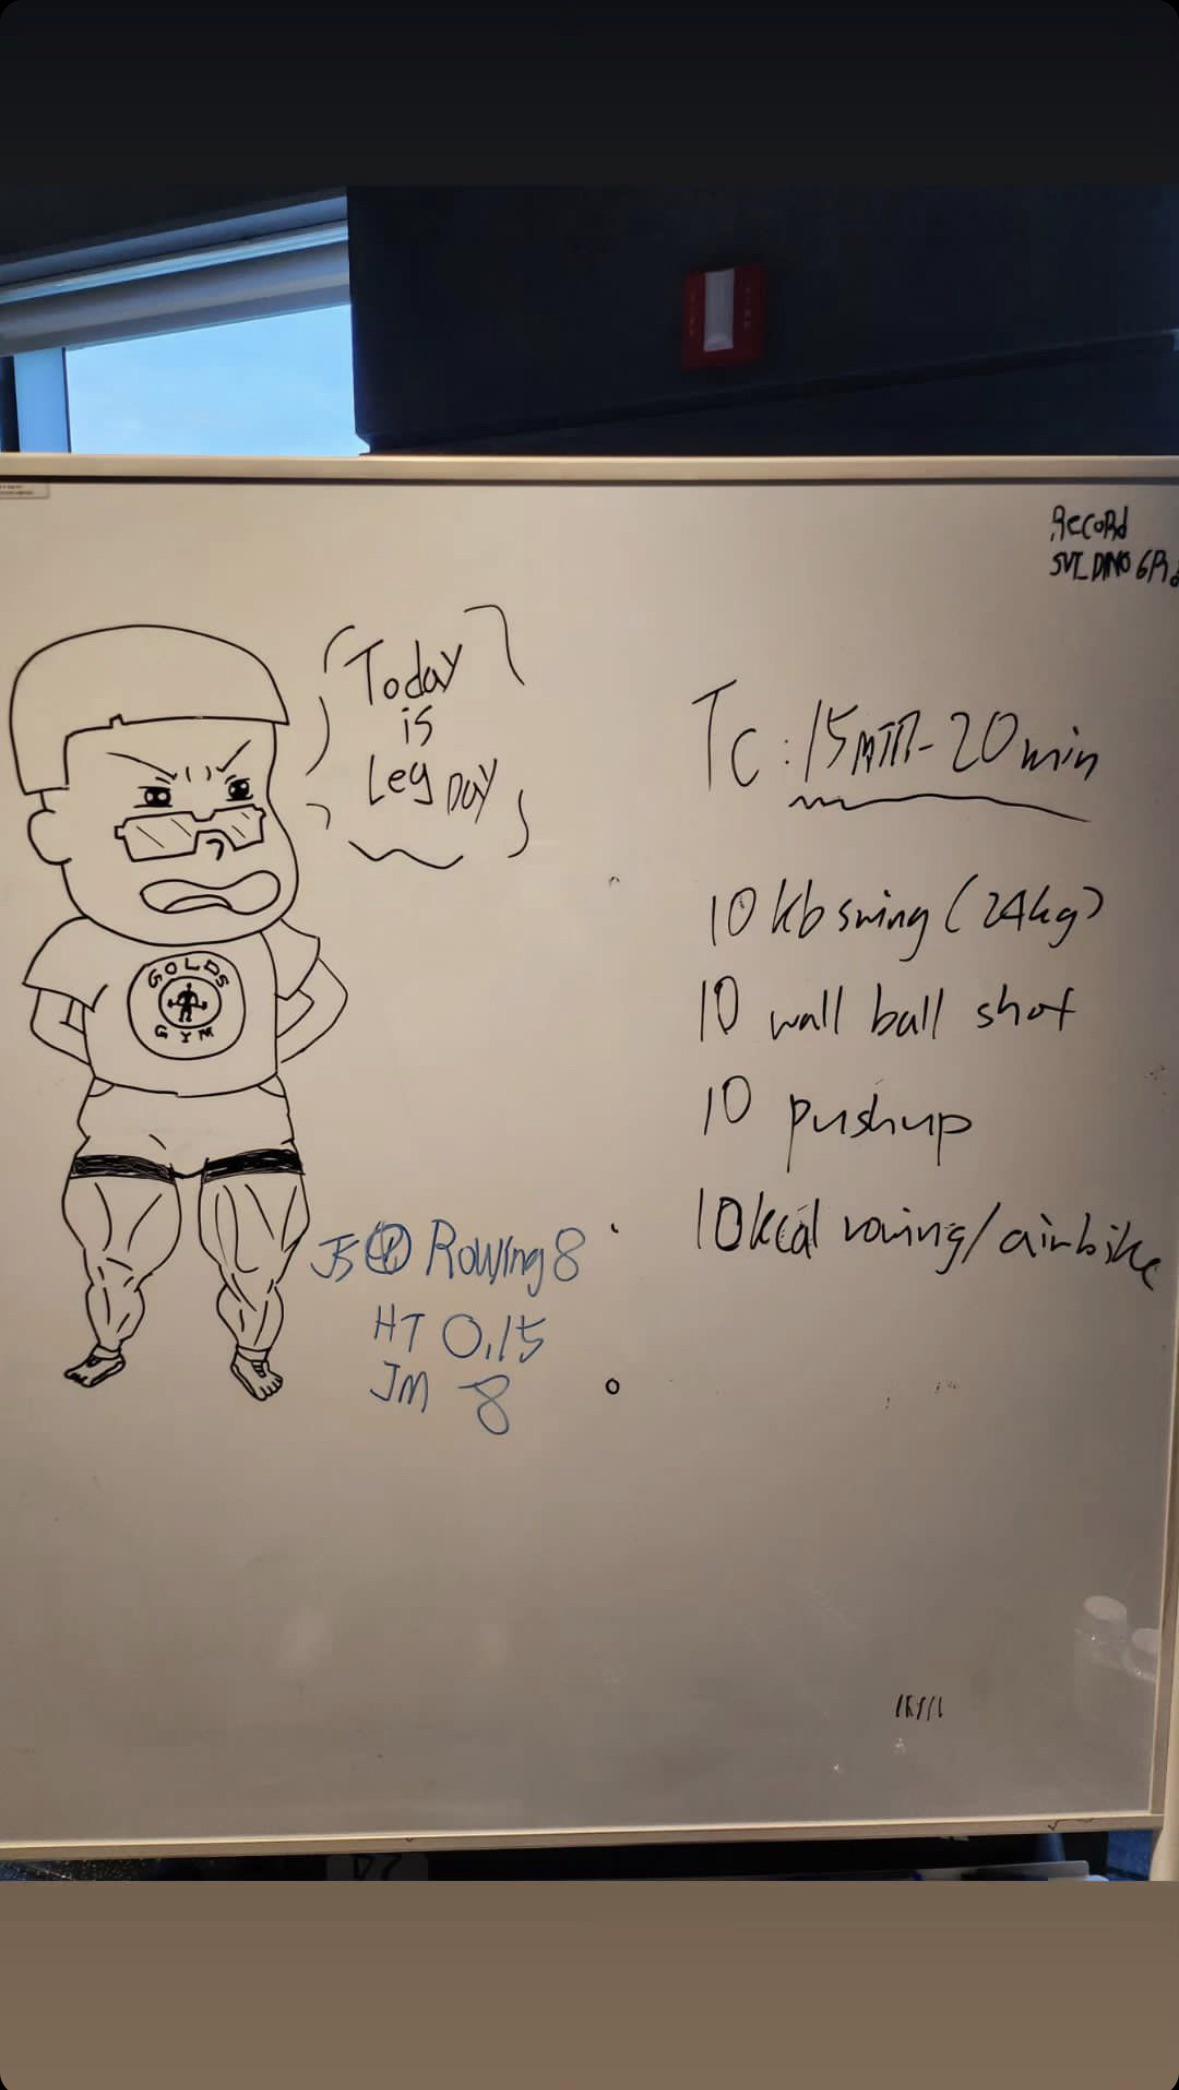 Record
Today
is
Leg DAY
GOLDS
GYM
TC : 15min - 20min
10 kb swing (24kg)
10 wall ball shot
10 pushup
10kcal rowing/airbike
JS Rowing 8
HT 0.15
JM 8